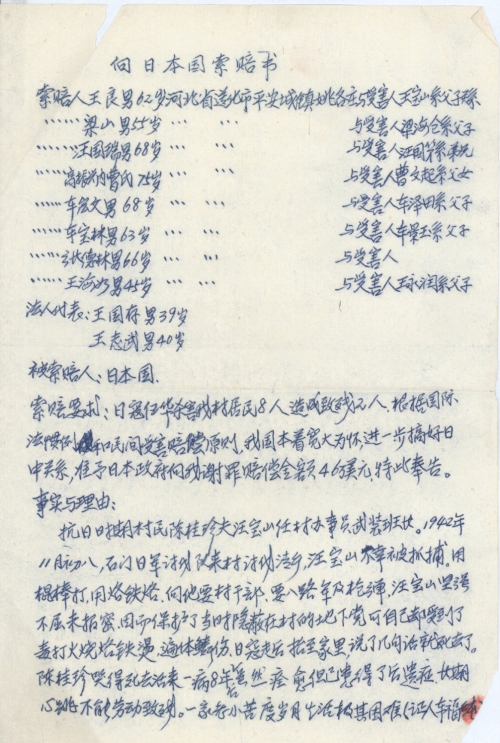 向日本国索赔书
索赔人王良男62岁河北省遵化市平安城镇姚各庄与受害人王宝山系父子关系
……梁山男55岁 … … 与受害人梁海仓系父子
……汪国瑞男68岁 … … 与受害人汪国策系弟兄
……高振兴内曹氏75岁 … … 与受害人曹文起系父女
……车宏文男68岁 … … 与受害人车泽田系父子
……车宝林男63岁 … … 与受害人车景玉系父子
……张德林男66岁 … … 与受害人
……王海水男45岁 … … 与受害人王永润系父子
法人代表:王国存男39岁
王志武男40岁
被索赔人:日本国.
索赔要求:日寇侵华杀害我村居民8人造成致残2人.根据国际
法惯例和民间受害赔偿原则,我国本着宽大为怀,进一步搞好日
中关系,准予日本政府向我谢罪赔偿金额46美元,特此奉告。
事实与理由:
抗日日期村民陈桂珍夫汪宝山任村办事员武装班长。1942年
11月初八,石门日军讨伐队来村讨伐清乡,汪宝山不幸被抓捕。用
棍棒打,用烙铁烙.向他要村干部、要八路军及枪弹,汪宝山坚强
不屈未招密,因而保护了当时隐蔽在村的地下党可自己却受到了
毒打火烧烙铁烫,遍体鳞伤,日寇走后抬至家里说了几句话就死去了。
陈桂珍哭得死去活来一病8年虽然痊愈但已患得了后遗症.长期
心跳不能劳动致残。一家老小苦度岁月生活极其困难(证人车福林